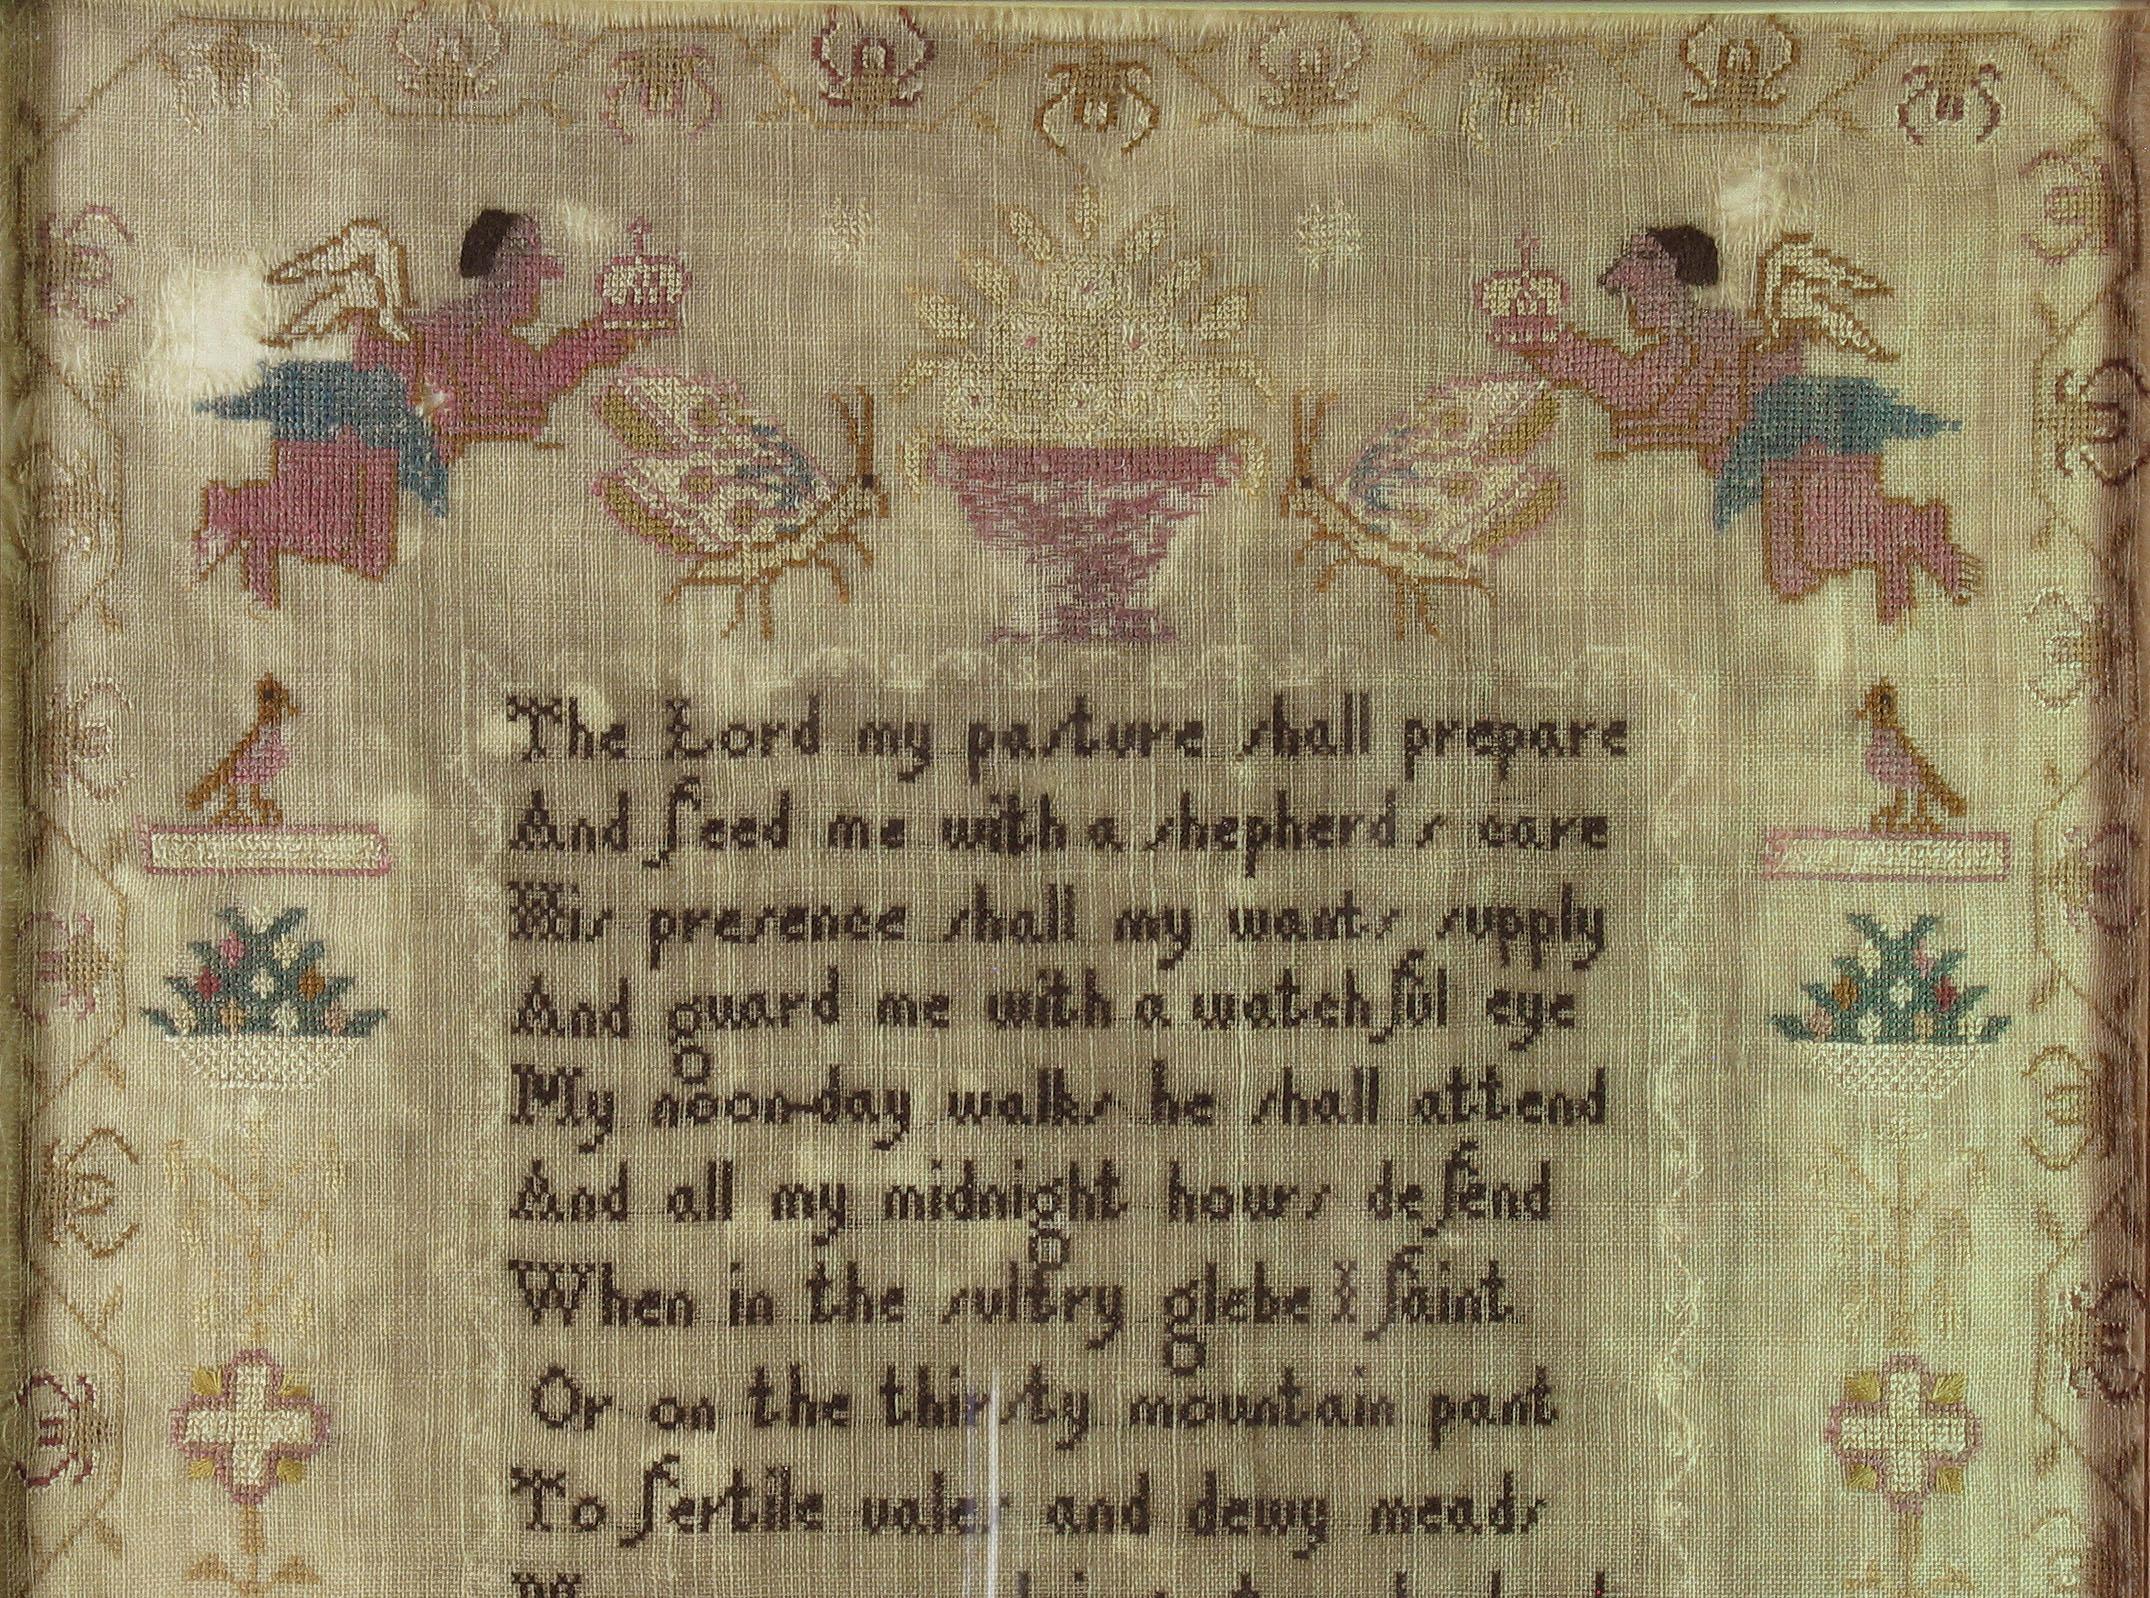 The Lord my pasture shall prepare
And feed me with a shepherds care
His presence shall my wants supply
And guard me with a watchful eye
My noon-day walks he shall attend
And all my midnight hours defend
When in the sultry glebe I faint
Or on the thirsty mountain pant
To fertile vales and dewy meads